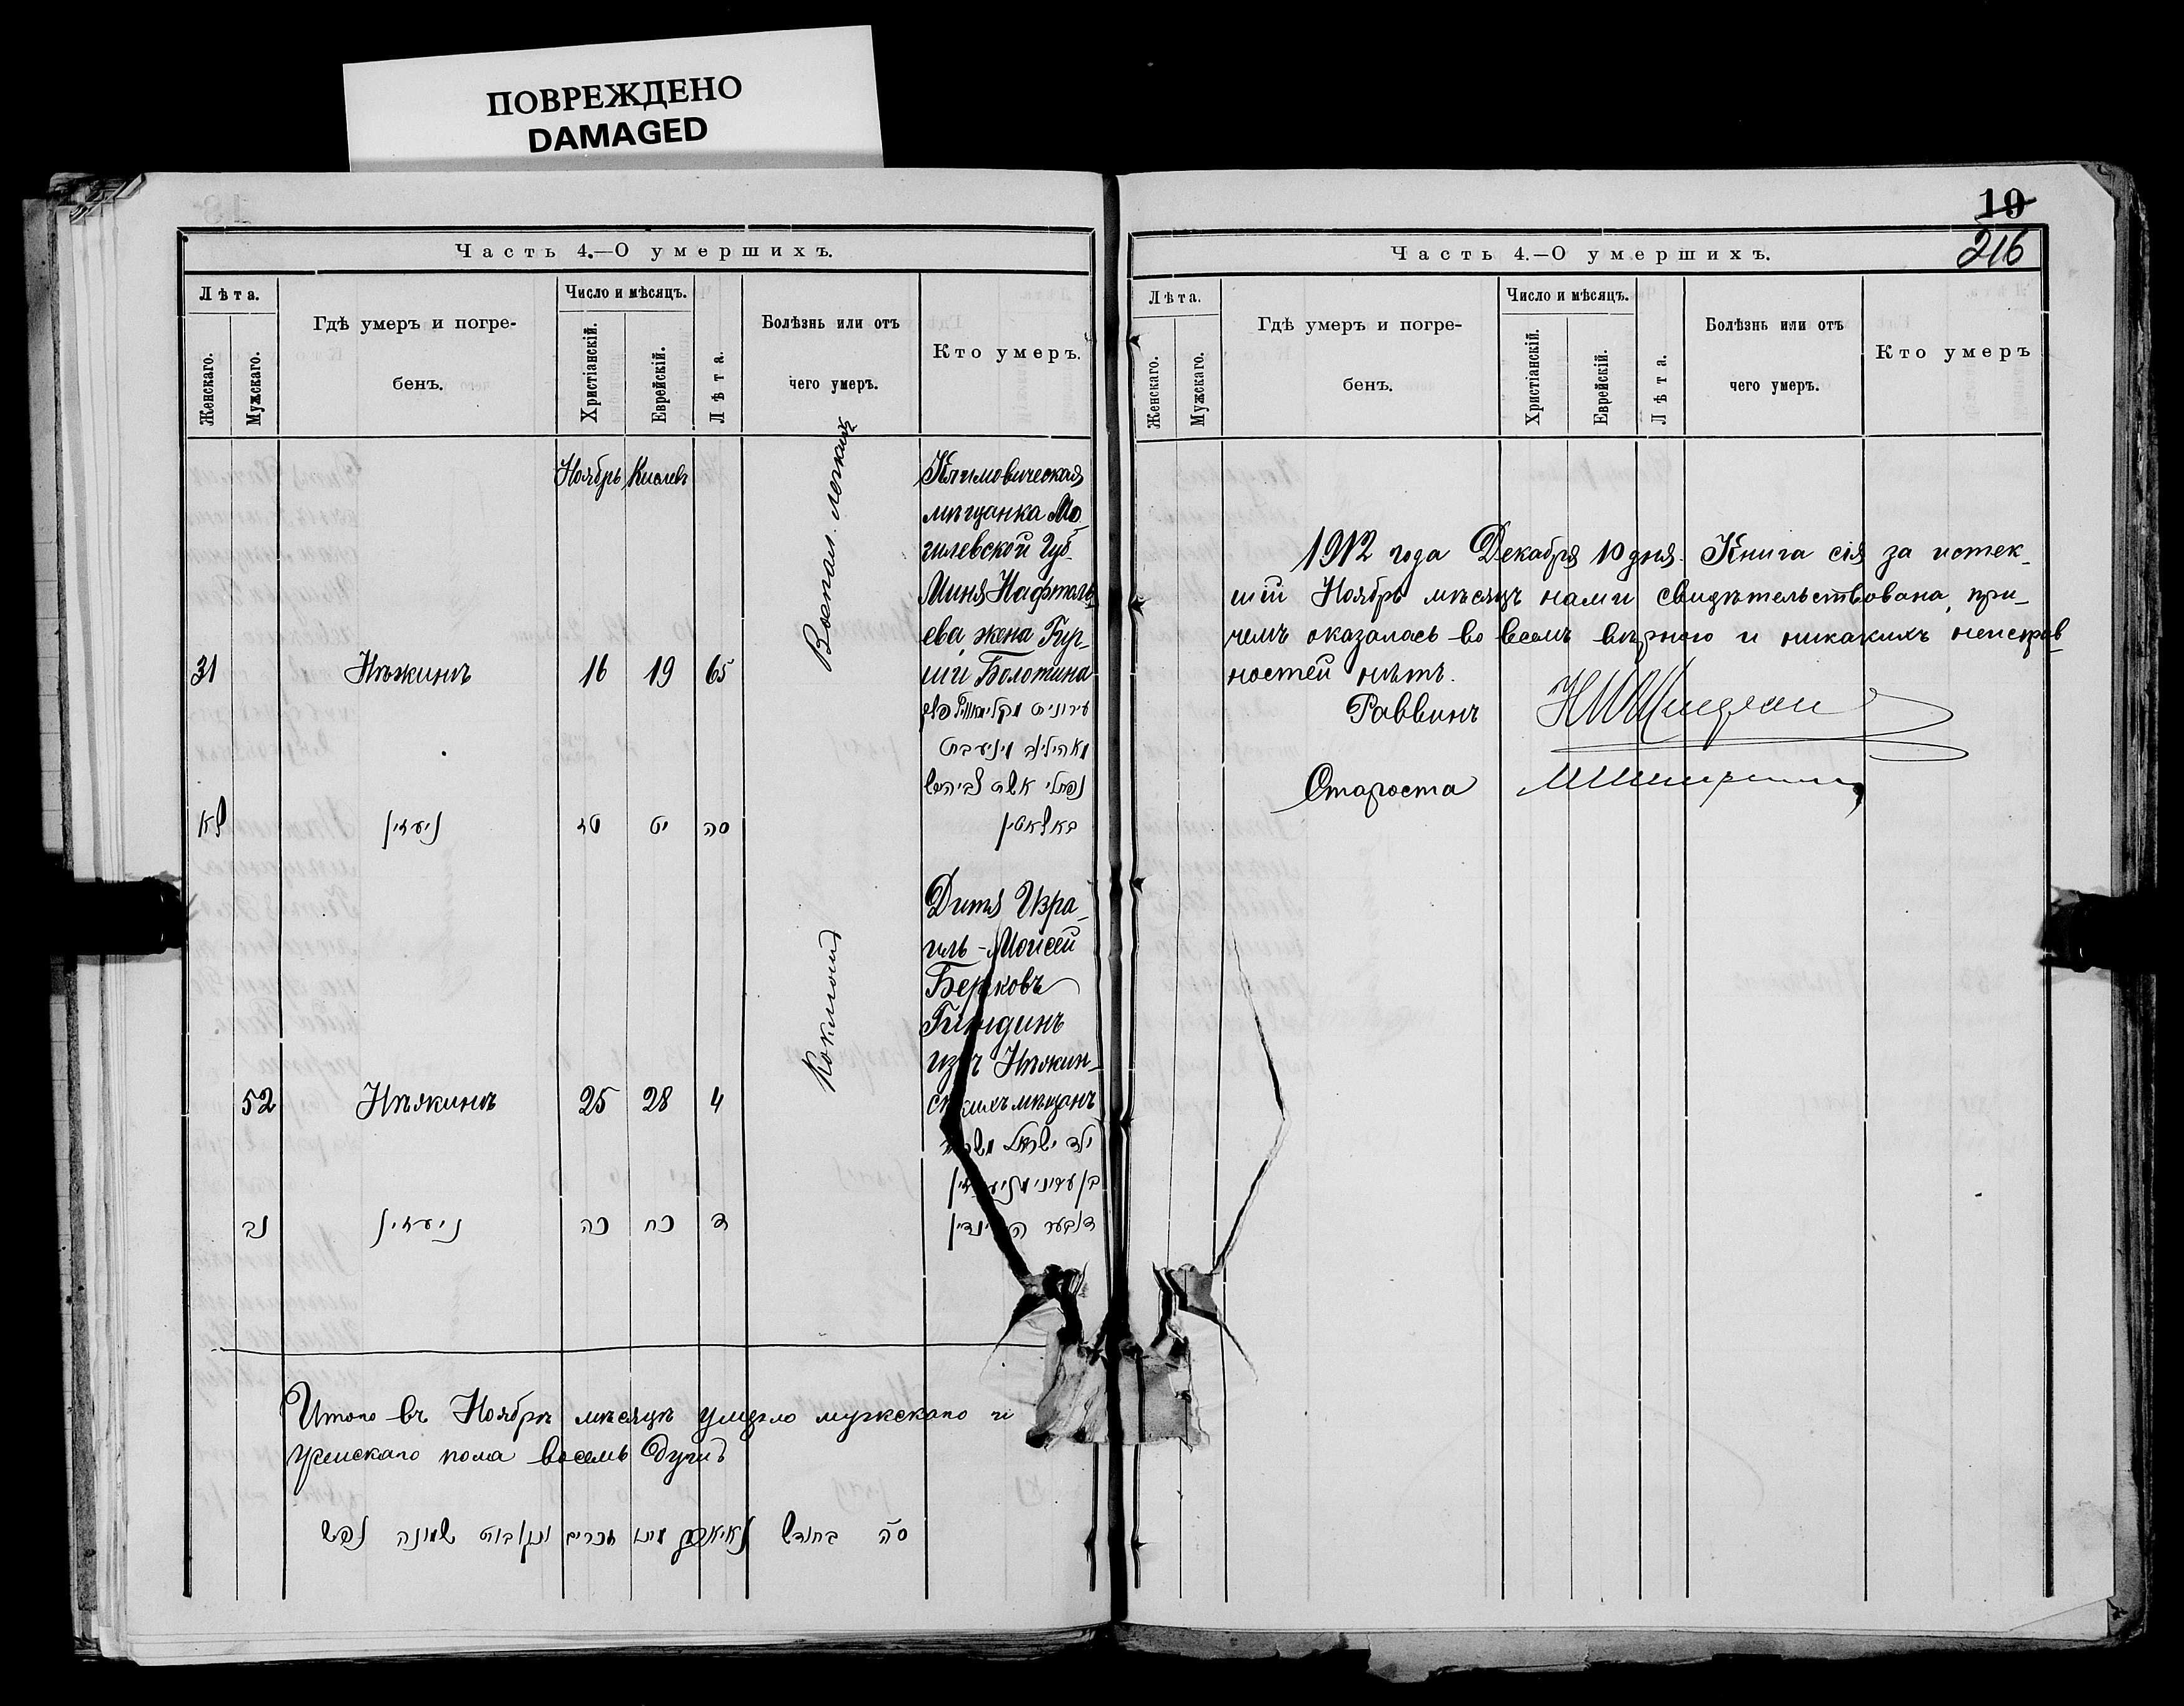 ПОВРЕЖДЕНО
DAMAGED
Часть 4.—О умершихъ.
Лѣта.
Женскаго.
Мужскаго.
Гдѣ умеръ и погре-
бенъ.
Число и мѣсяцъ.
Христіанскій.
Еврейскій.
Лѣта.
Болѣзнь или отъ
чего умеръ.
Кто умеръ.
Ноябрь Кислевъ
Воспал. легкихъ
Климовическая
мѣщанка Мо
гилевской Губ
Миня Нафталь
ева, жена Гир-
ши Болотина
31 Нѣжинъ 16 19 65
נפתלי אשת
לא ניעזין טז יט סה
Дитя Изра-
иль-Моисей
Берковъ
Гиндинъ
изъ Нѣжин-
скихъ мѣщанъ
52 Нѣжинъ 25 28 4
ילד ישראל
נב ניעזין כה כח ד
Итого въ Ноябрѣ мѣсяцѣ умерло мужскаго и
женскаго пола восемь душъ
סה בחודש מתו זכרים ונקבות שמונה נפש
19
216
Часть 4.—О умершихъ.
Лѣта.
Женскаго.
Мужскаго.
Гдѣ умеръ и погре-
бенъ.
Число и мѣсяцъ.
Христіанскій.
Еврейскій.
Лѣта.
Болѣзнь или отъ
чего умеръ.
Кто умеръ
1912 года Декабря 10 дня. Книга сія за истек-
шій Ноябрь мѣсяцъ нами свидѣтельствована, при-
чемъ оказалась во всемъ вѣрною и никакихъ неисправ-
ностей нѣтъ.
Раввинъ
Староста